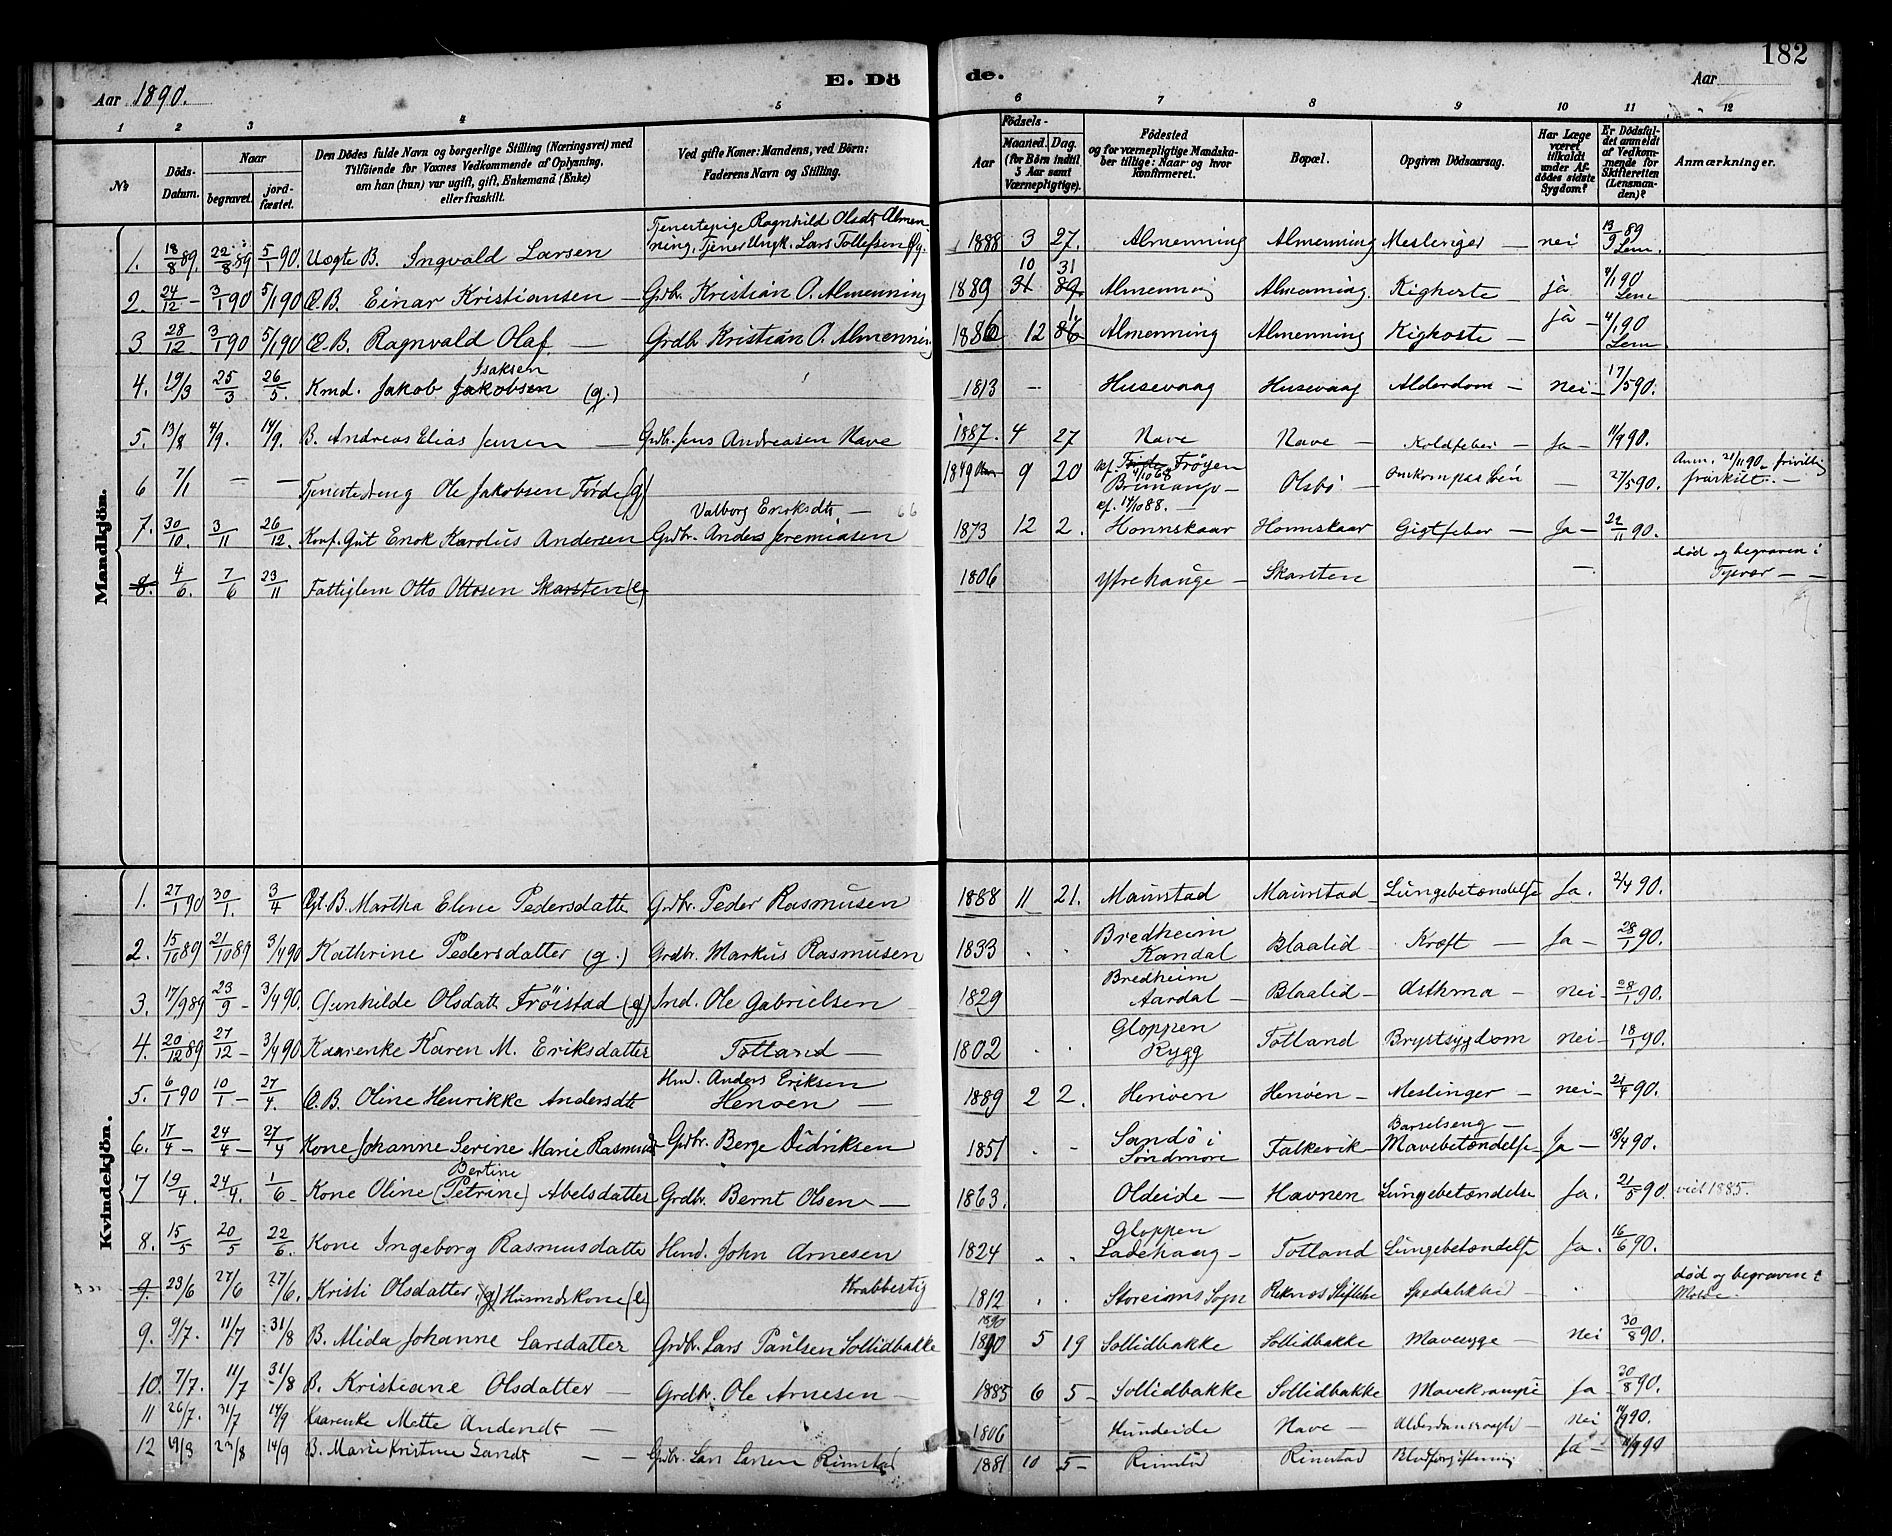 182
Aar 1890.
E. Dö
de.
Aar
1 2 3 4 5 6 7 8 9 10 11 12
No
Döds-Datum.
Naar
begravet.
jordfæstet.
Den Dödes fulde Navn og borgerlige Stilling (Næringsvei) med
Tilföiende for Voxnes Vedkommende af Oplysning,
om han (hun) var ugift, gift, Enkemand (Enke)
eller fraskilt.
Ved gifte Koner: Mandens, ved Börn:
Faderens Navn og Stilling.
Födsels-
Aar
Maaned. Dag.
(for Börn indtil
5 Aar samt
Værnepligtige).
Födested
og for værnepligtige Mandska-
ber tillige: Naar og hvor
konfirmeret.
Bopæl.
Opgiven Dödsaarsag.
Har Læge
været
tilkaldt
under Af-
dödes sidste
Sygdom?
Er Dödsfal-
det anmeldt
af Vedkom-
mende for
Skifteretten
(Lensman-
den)?
Anmærkninger.
Mandkjön.
1. 18/8 89. 22/8 89 5/1 90. Uægte B. Ingvald Larsen Tjenestepige Ragnhild Olsdt Almenning, Tjener Ungk. Lars Tollefsen 1888 3 27. Almenning Almenning Meslinger — nei 13/9 89 Lem.
2. 24/12 — 3/1 90 5/1 90 Æ.B. Einar Kristiansen — Grdbr. Kristian O. Almenning 1889 10 31 Almenning Almenning. Kighoste — ja 4/1 90 Lem
3 28/12 3/1 90 5/1 90 Æ.B. Ragnvald Olaf — Grdbr Kristian O. Almenning 1886 12 Almenning Almenning Kighoste — ja — 4/1 90 Lem
4. 19/3 25/3 26/5. Kmd. Jakob Isaksen Jakobsen (g.) 1813 — - Husevaag Husevaag Alderdom — nei — 17/5 90.
5. 13/8 4/9. 14/9. B. Andreas Elias Jensen — Grdbr. Jens Andreasen Nave 1887. 4 27 Nave Nave — Koldfeber — Ja — 11/9 90.
6 7/1 — — Tjenestedreng Ole Jakobsen Förde (g) 1849 9 20 Fröyen 4/10 68 Bremanger — Olsbö — omkom paa Söen — 27/5 90. Anm. 21/11 90 — frivillig fraskilt. —
7. 30/10. 3/11 26/12. Konf. Gut Enok Karolus Andersen Valborg Eriksdt. — Grdbr. Anders Jeremiasen 1873 12 2. kf. 14/10 88. — Honnskaar Honnskaar Gigtfeber — Ja — 22/11 90.
8. 4/6. 7/6 23/11 Fattiglem Otto Ottosen Skarsten (e) 1806 Ytrehauge — Skarsten — död og begraven i Tysvær —
Kvindekjön.
1. 27/1 90 30/1. 3/4 Ægt. B. Martha Eline Pedersdatter Grdbr. Peder Rasmusen 1888 11 21. Maurstad Maurstad Lungebetændelse Ja. 2/4 90.
2. 15/10 89 21/10 89 3/4 90 Kathrine Pedersdatter (g.) Grdbr. Markus Rasmusen 1833 . . Bredheim Kandal Blaalid — Kræft — Ja — 28/1 90.
3. 17/9 89 23/9 — 3/4 90. Gunhilde Olsdatt Fröistad (g) Ind. Ole Gabrielsen 1829 Bredheim Aardal — Blaalid — Asthma — nei — 28/1 90.
4. 20/12 89 27/12 — 3/4 90 Kaarenke Karen M. Eriksdatter Totland — 1802 . . Gloppen Rygg Totland Brystsygdom nei — 18/1 90.
5. 6/1 90 10/1 — 27/4. Æ.B. Oline Henrikke Andersdtr Hmd. Anders Eriksen Henöen — 1889 2 2. Henöen Henöen — Meslinger — nei — 21/4 90.
6. 17/4 — 24/4 — 27/4 Kone Johanne Serine Marie Rasmusdt Grdbr. Berge Didriksen 1851 . - Sandö i Söndmöre Falkevik — Barselseng — Mavebetændelse — Ja — 18/4 90.
7 19/4. 24/4. 1/6 — Kone Oline Bertine (Petrine) Abelsdatter Grdbr. Bernt Olsen — 1863. Oldeide — Havnen Lungebetændelse Ja. 21/5 90. viet 1885.
8. 15/5 20/5 22/6. Kone Ingeborg Rasmusdatter Hmd. John Arnesen 1824 . . Gloppen Ladehaug — Totland Lungebetændelse Ja. 16/6 90.
9. 23/6 27/6 27/6. Kristi Olsdatter (g) Husmdskone (e) Krabbestig 1812 . . Storeims Sogn Reknes Stiftelse Spedalskhed . död og begraven i Molde —
9. 9/7. 11/7 31/8 B. Alida Johanne Larsdatter Grdbr. Lars Paulsen Sollidbakke 1890 5 19 Sollidbakke Sollidbakke Mavesyge — nei 30/8 90.
10. 7/7. 11/7 31/8 B. Kristiane Olsdatter — Grdbr. Ole Arnesen — 1885 6 5 — Sollidbakke Sollidbakke Mavekrampe Ja — 30/8 90.
11 26/7. 31/7 14/9 Kaarenke Mette Andersdt — 1806 Hundeide — Nave — Alderdomssvaghed — nei 11/9 90.
12 19/8 23/8 14/9 B. Marie Kristine Larsdt — — Grdbr. Lars Larsen Rimstad 1881 10 5 — Rimstad Rimstad Blodforgiftning Ja — 11/9 90